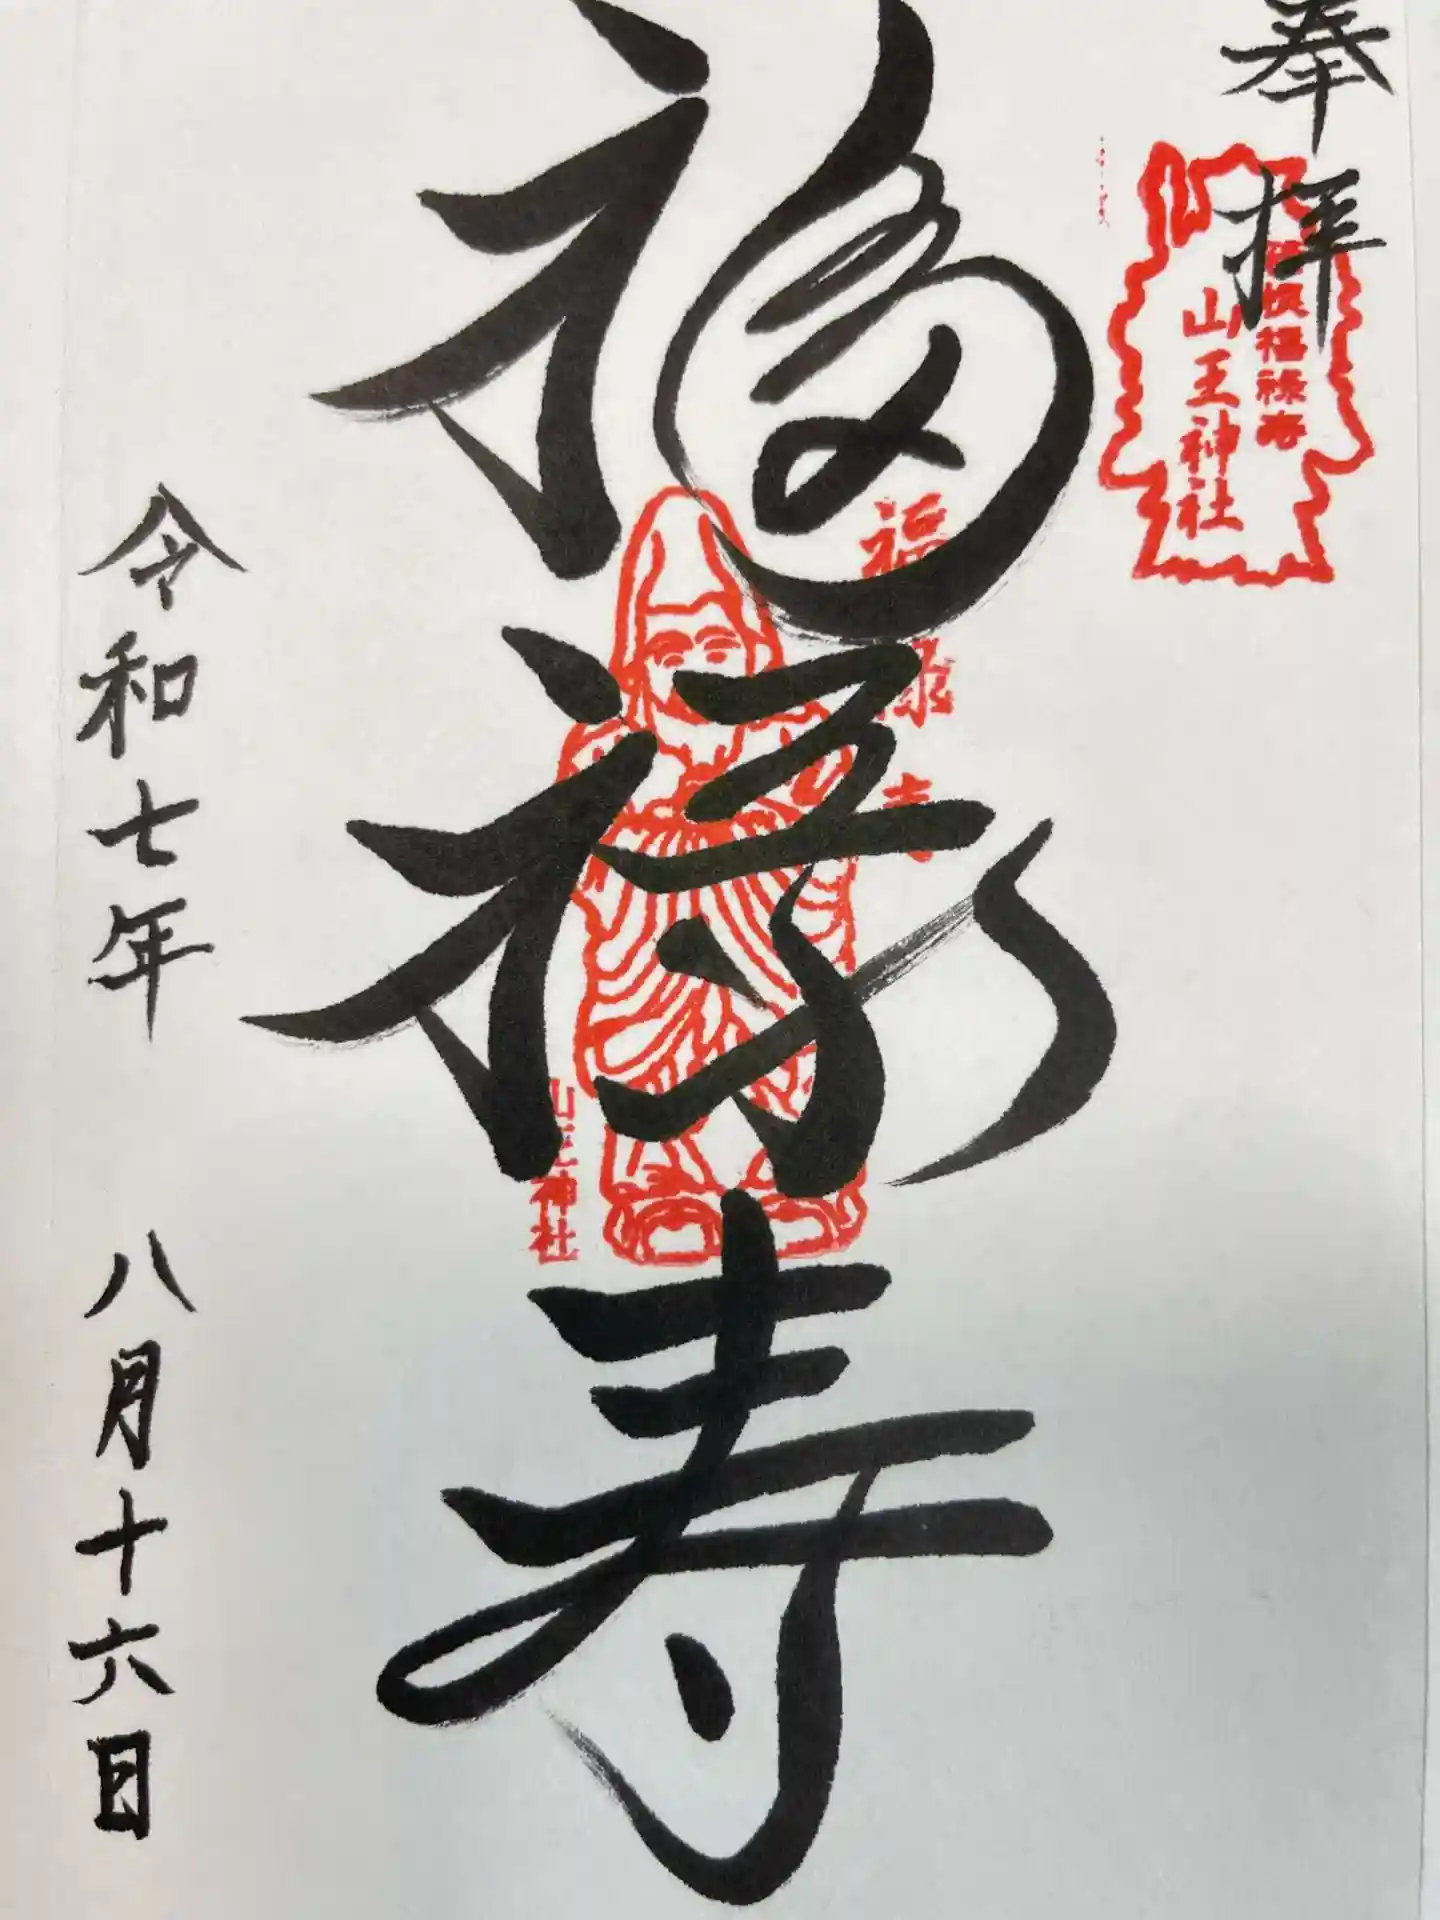 奉拝
福禄寿
山王神社
福禄寿
福禄寿
山王神社
令和七年 八月十六日